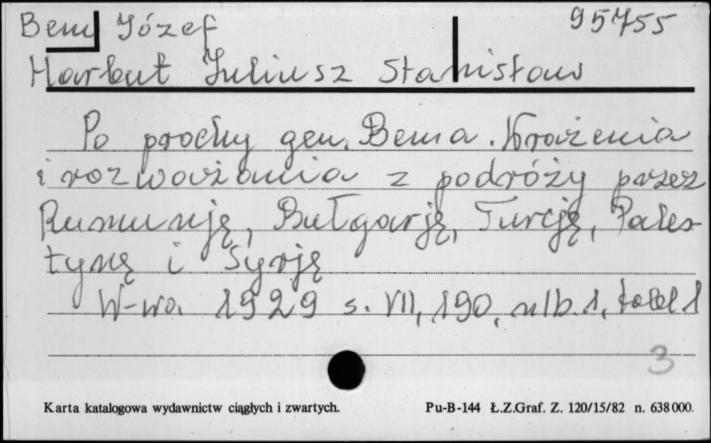 Bem Józef 95755
Harbut Juliusz Stanisław
Po prochy gen. Bema. Wrażenia
i rozważania z podróży przez
Rumunję, Bułgarję, Turcję, Pales-
tynę i Syrję
W-wa 1929 s. VII, 190, nlb. 1, tabl 1
3
Karta katalogowa wydawnictw ciągłych i zwartych. Pu-B-144 Ł.Z.Graf. Z. 120/15/82 n. 638000.